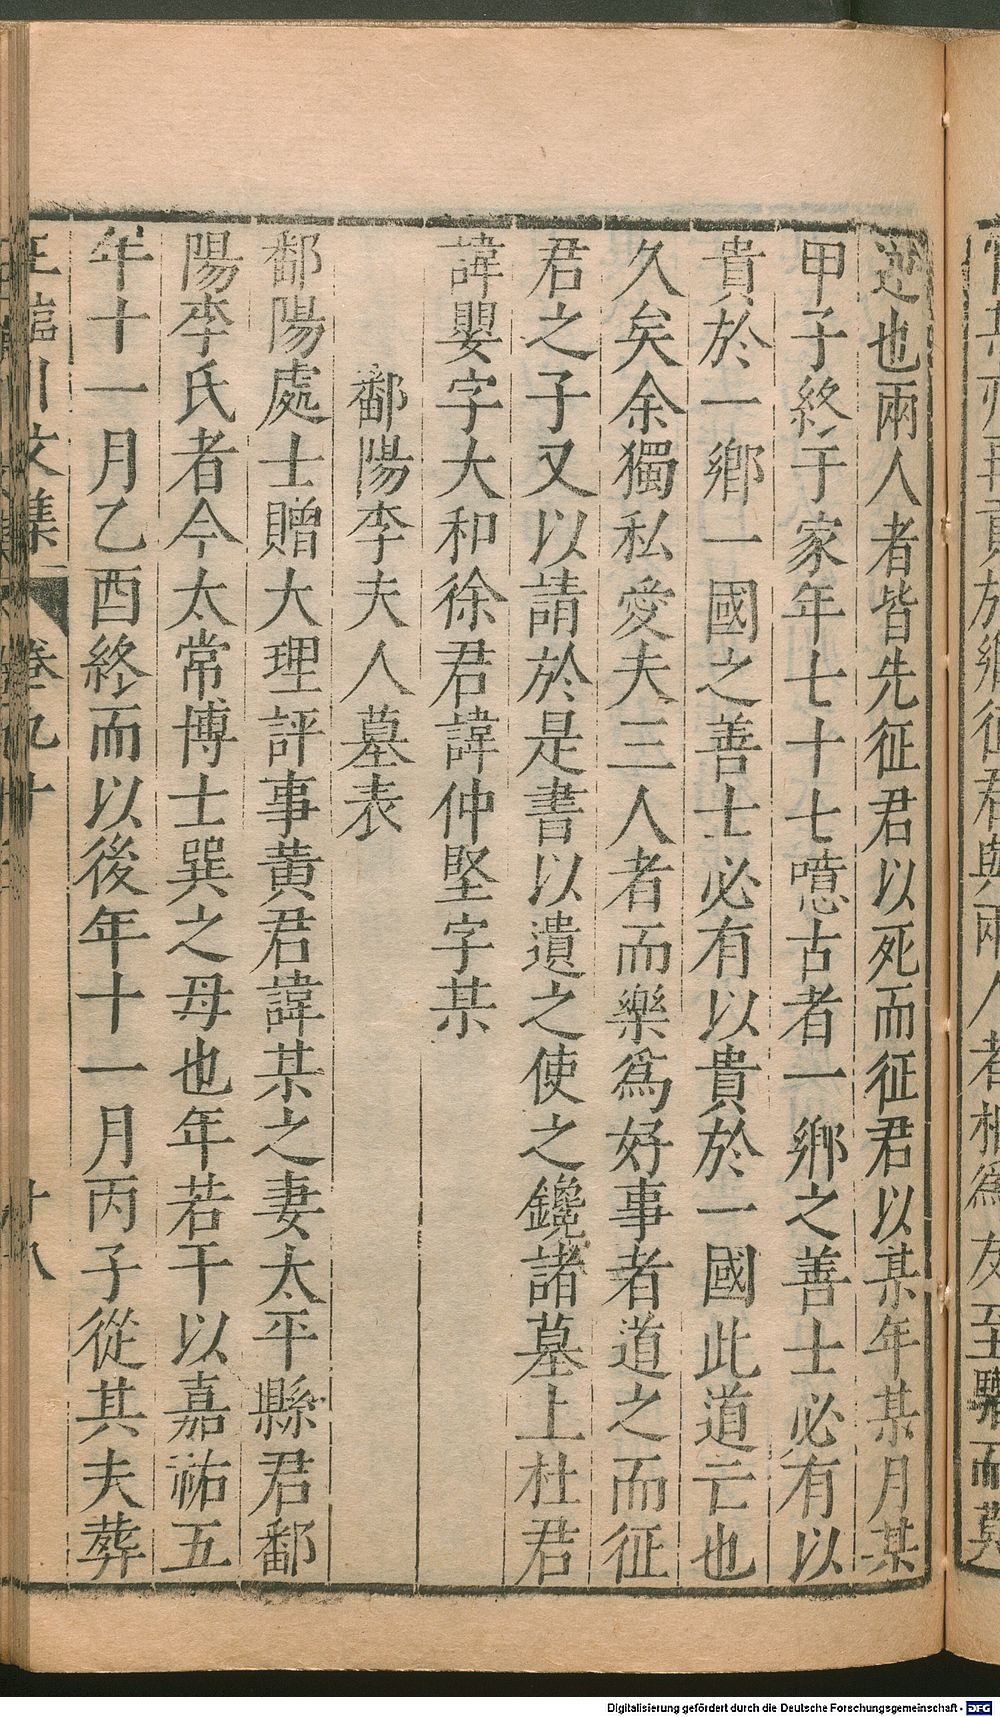 逆也兩人者皆先征君以死而征君以某年某月某
甲子終于家年七十七噫古者一鄉之善士必有以
貴於一鄉一國之善士必有以貴於一國此道亡也
久矣余獨私愛夫三人者而樂為好事者道之而征
君之子又以請於是書以遺之使之鑱諸墓上杜君
諱嬰字大和徐君諱仲堅字某
鄱陽李夫人墓表
鄱陽處士贈大理評事黃君諱某之妻太平縣君鄱
陽李氏者今太常博士巽之母也年若干以嘉祐五
年十一月乙酉終而以後年十一月丙子從其夫葬
王臨川文集 卷九十 十八
Digitalisierung gefördert durch die Deutsche Forschungsgemeinschaft - DFG